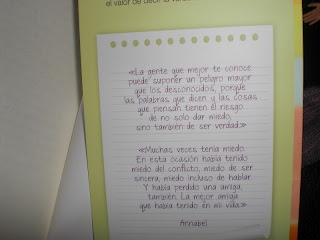 el valor de decir la verdad
«La gente que mejor te conoce
puede suponer un peligro mayor
que los desconocidos, porque
las palabras que dicen y las cosas
que piensan tienen el riesgo
de no solo dar miedo,
sino también de ser verdad.»
«Muchas veces tenía miedo.
En esta ocasión había tenido
miedo del conflicto, miedo de ser
sincera, miedo incluso de hablar.
Y había perdido una amiga,
también. La mejor amiga
que había tenido en mi vida.»
Annabel